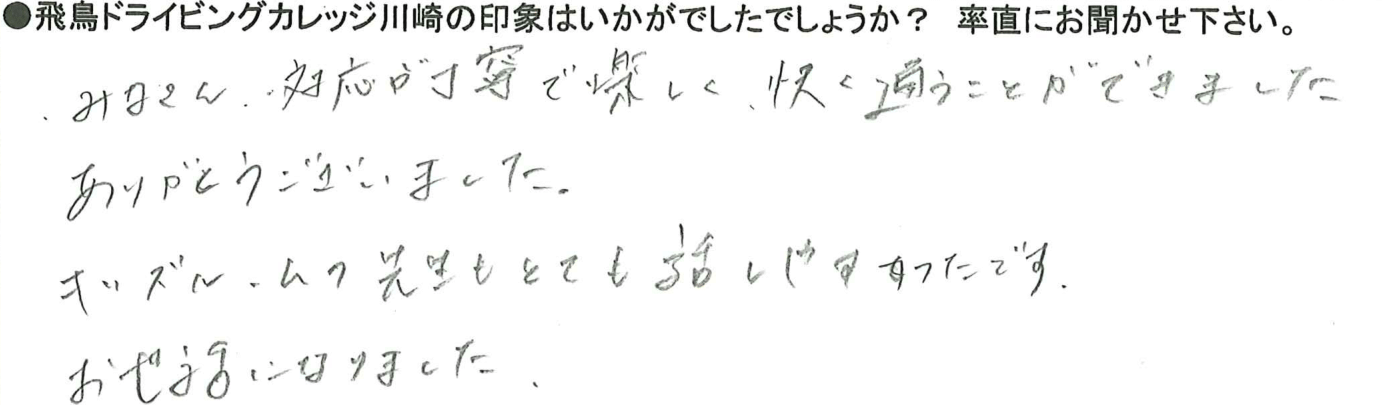 ●飛鳥ドライビングカレッジ川崎の印象はいかがでしたでしょうか？ 率直にお聞かせ下さい。
みなさん、対応が丁寧で楽しく、快く通うことができました
ありがとうございました。
キッズルームの先生もとても話しやすかったです。
お世話になりました。